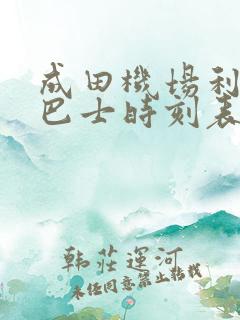 成田機場利
巴士時刻表
韩莊運河
未任同意禁止转载